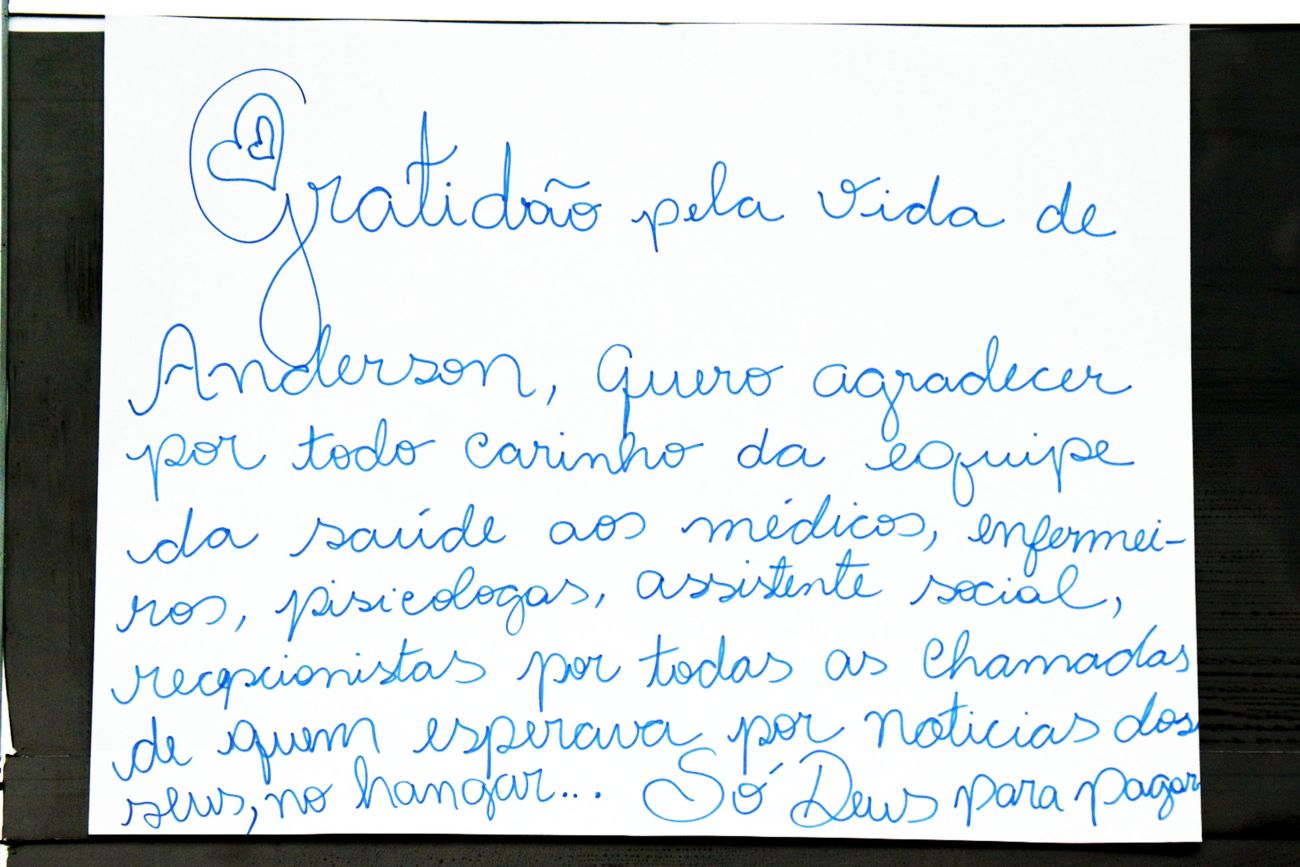 Gratidão pela vida de
Anderson, Quero agradecer
por todo carinho da equipe
da saúde aos médicos, enfermei-
ros, pisicologas, assistente social,
recepcionistas por todas as chamadas
de quem esperava por noticias dos
seus, no hangar... Só Deus para pagar